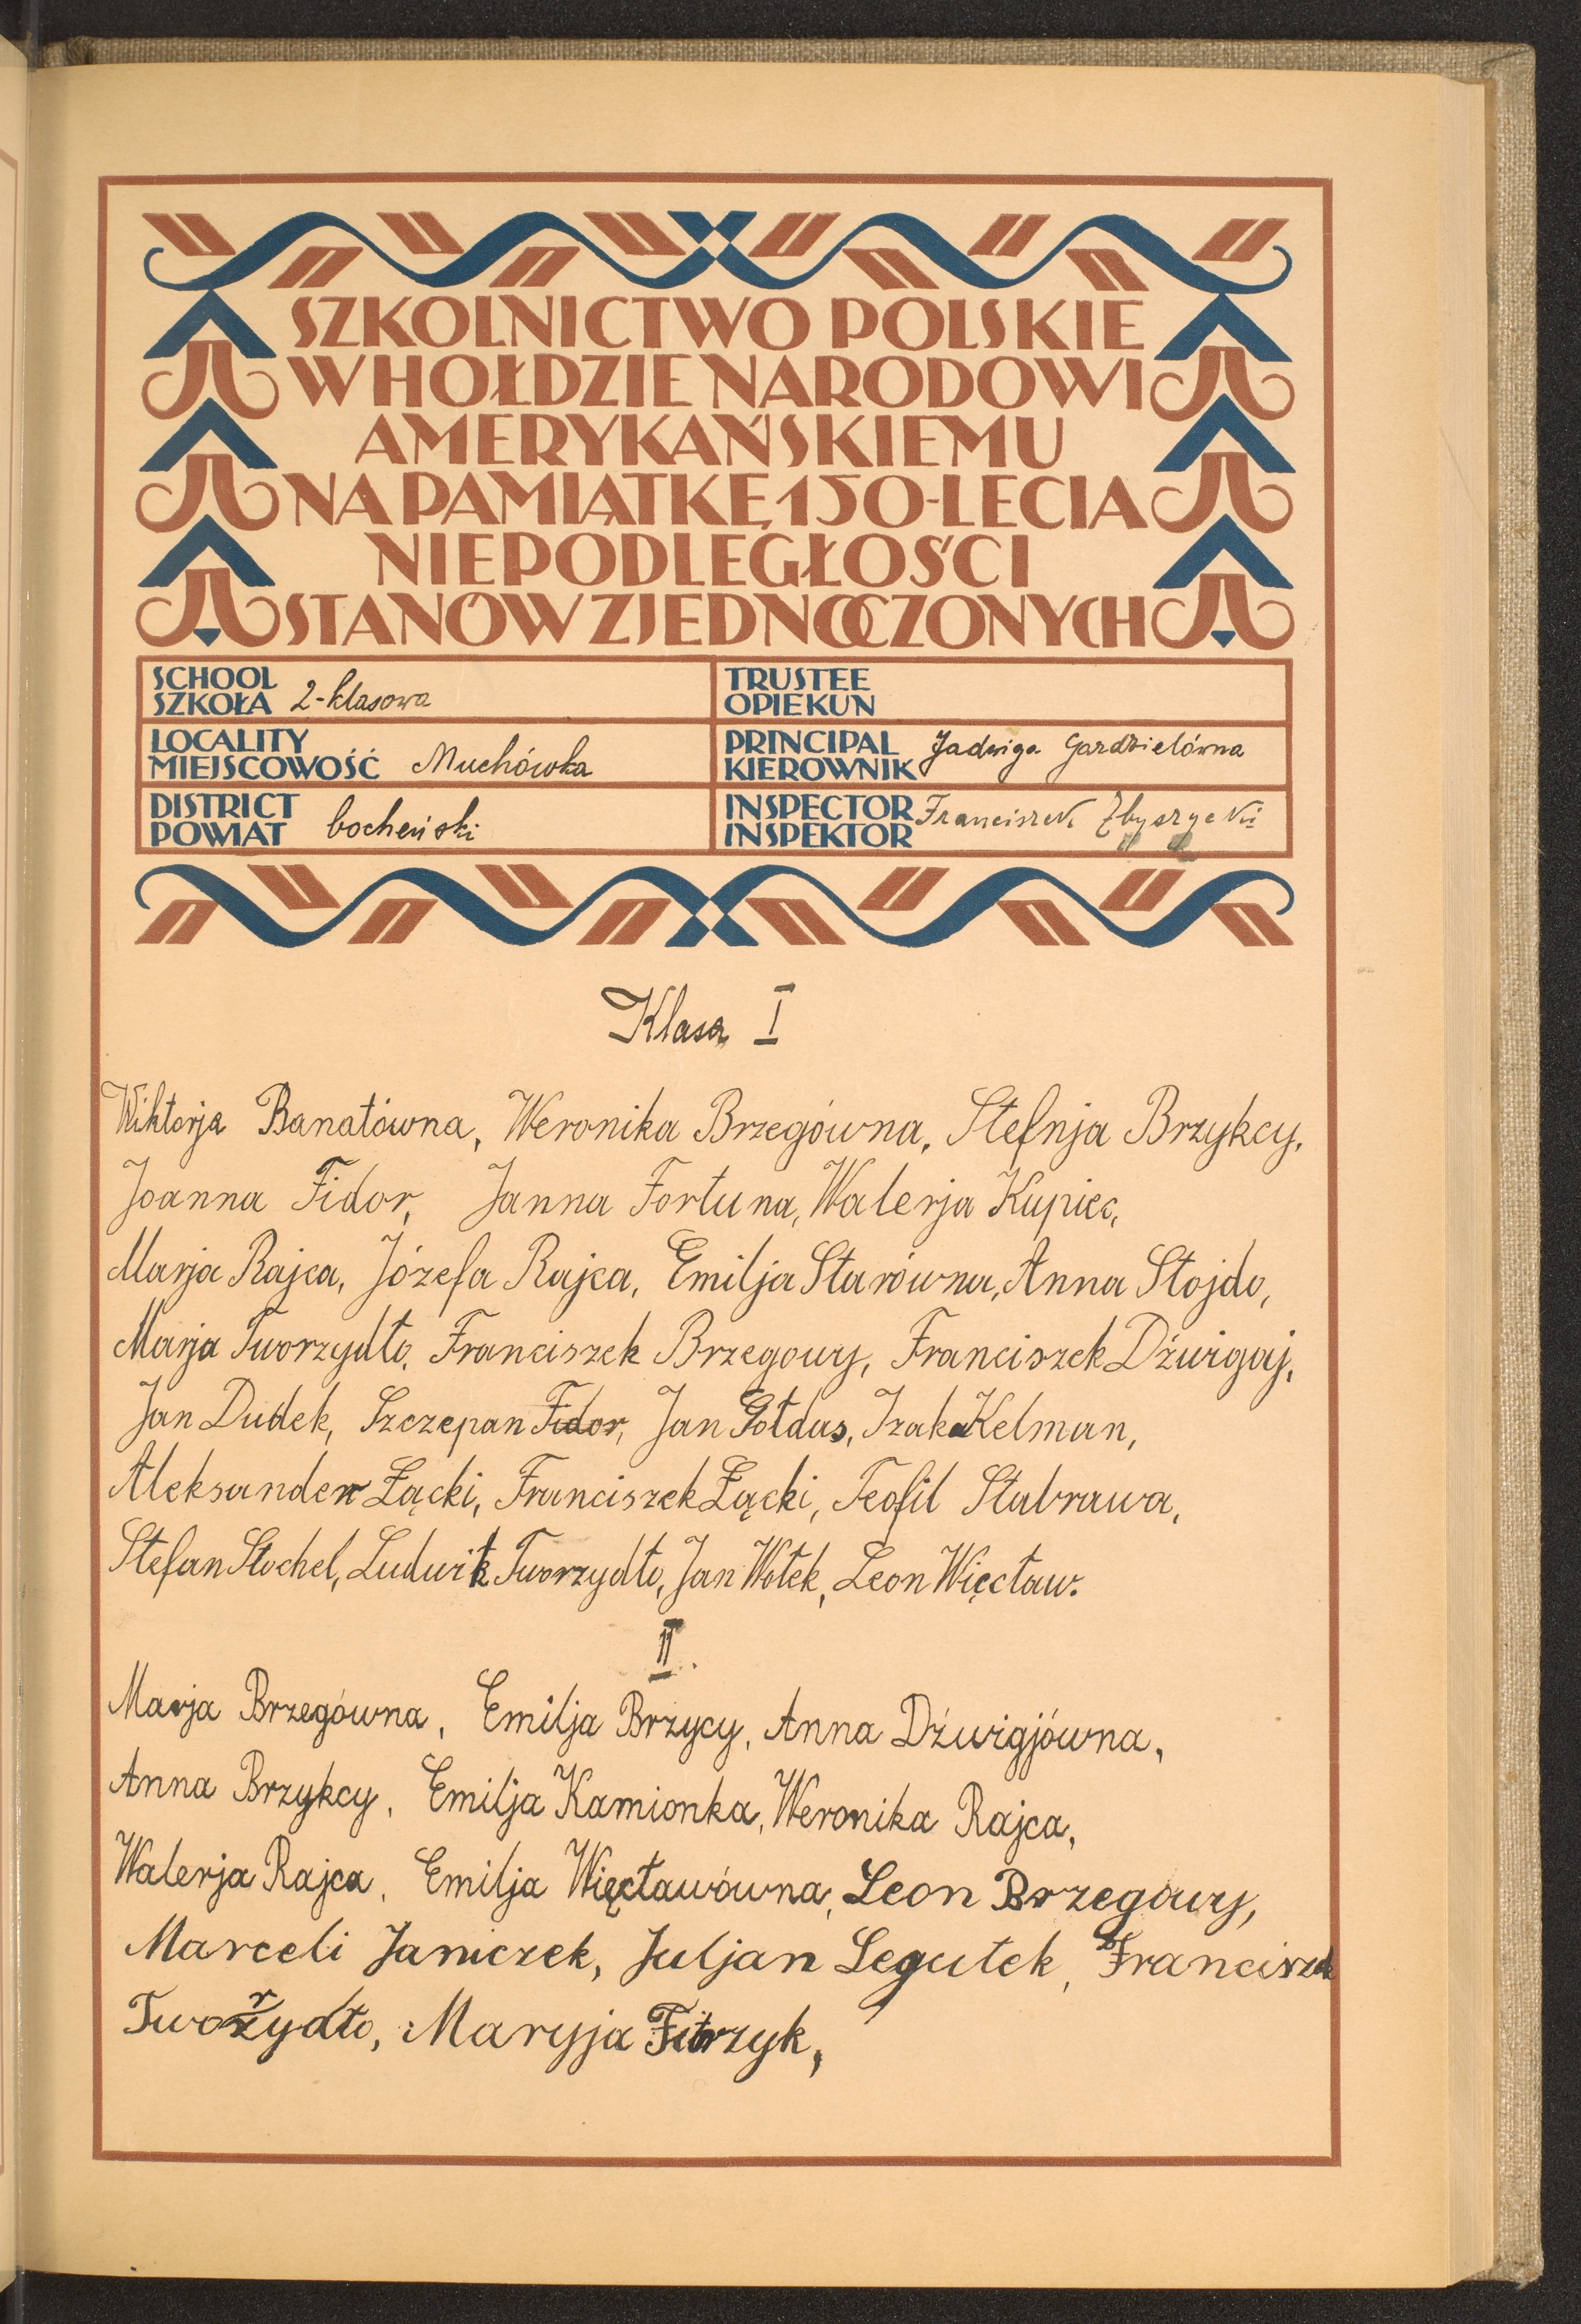 SZKOLNICTWO POLSKIE
W HOŁDZIE NARODOWI
AMERYKAŃSKIEMU
NA PAMIĄTKĘ 150-LECIA
NIEPODLEGŁOŚCI
STANÓW ZJEDNOCZONYCH
SCHOOL
SZKOŁA 2-klasowa
TRUSTEE
OPIEKUN
LOCALITY
MIEJSCOWOŚĆ Muchówka
PRINCIPAL
KIEROWNIK Jadwiga Gardzielówna
DISTRICT
POWIAT bocheński
INSPECTOR
INSPEKTOR Franciszek Zbyszycki
Klasa I
Wiktorja Banatówna, Weronika Brzegówna, Stefnja Brzykcy,
Joanna Fidor, Janna Fortuna, Walerja Kupiec,
Marja Rajca, Józefa Rajca, Emilja Starówna, Anna Stojdo,
Marja Tworzydło, Franciszek Brzegowy, Franciszek Dźwigaj,
Jan Dudek, Szczepan Fidor, Jan Gołdus, Izak Kelman,
Aleksander Łącki, Franciszek Łącki, Teofil Stabrawa,
Stefan Stochel, Ludwik Tworzydło, Jan Wołek, Leon Więcław.
II.
Marja Brzegówna, Emilja Brzycy, Anna Dźwigjówna,
Anna Brzykcy, Emilja Kamionka, Weronika Rajca,
Walerja Rajca, Emilja Więcławówna, Leon Brzegowy,
Marceli Janiczek, Juljan Legutek, Franciszek
Tworzydło, Maryja